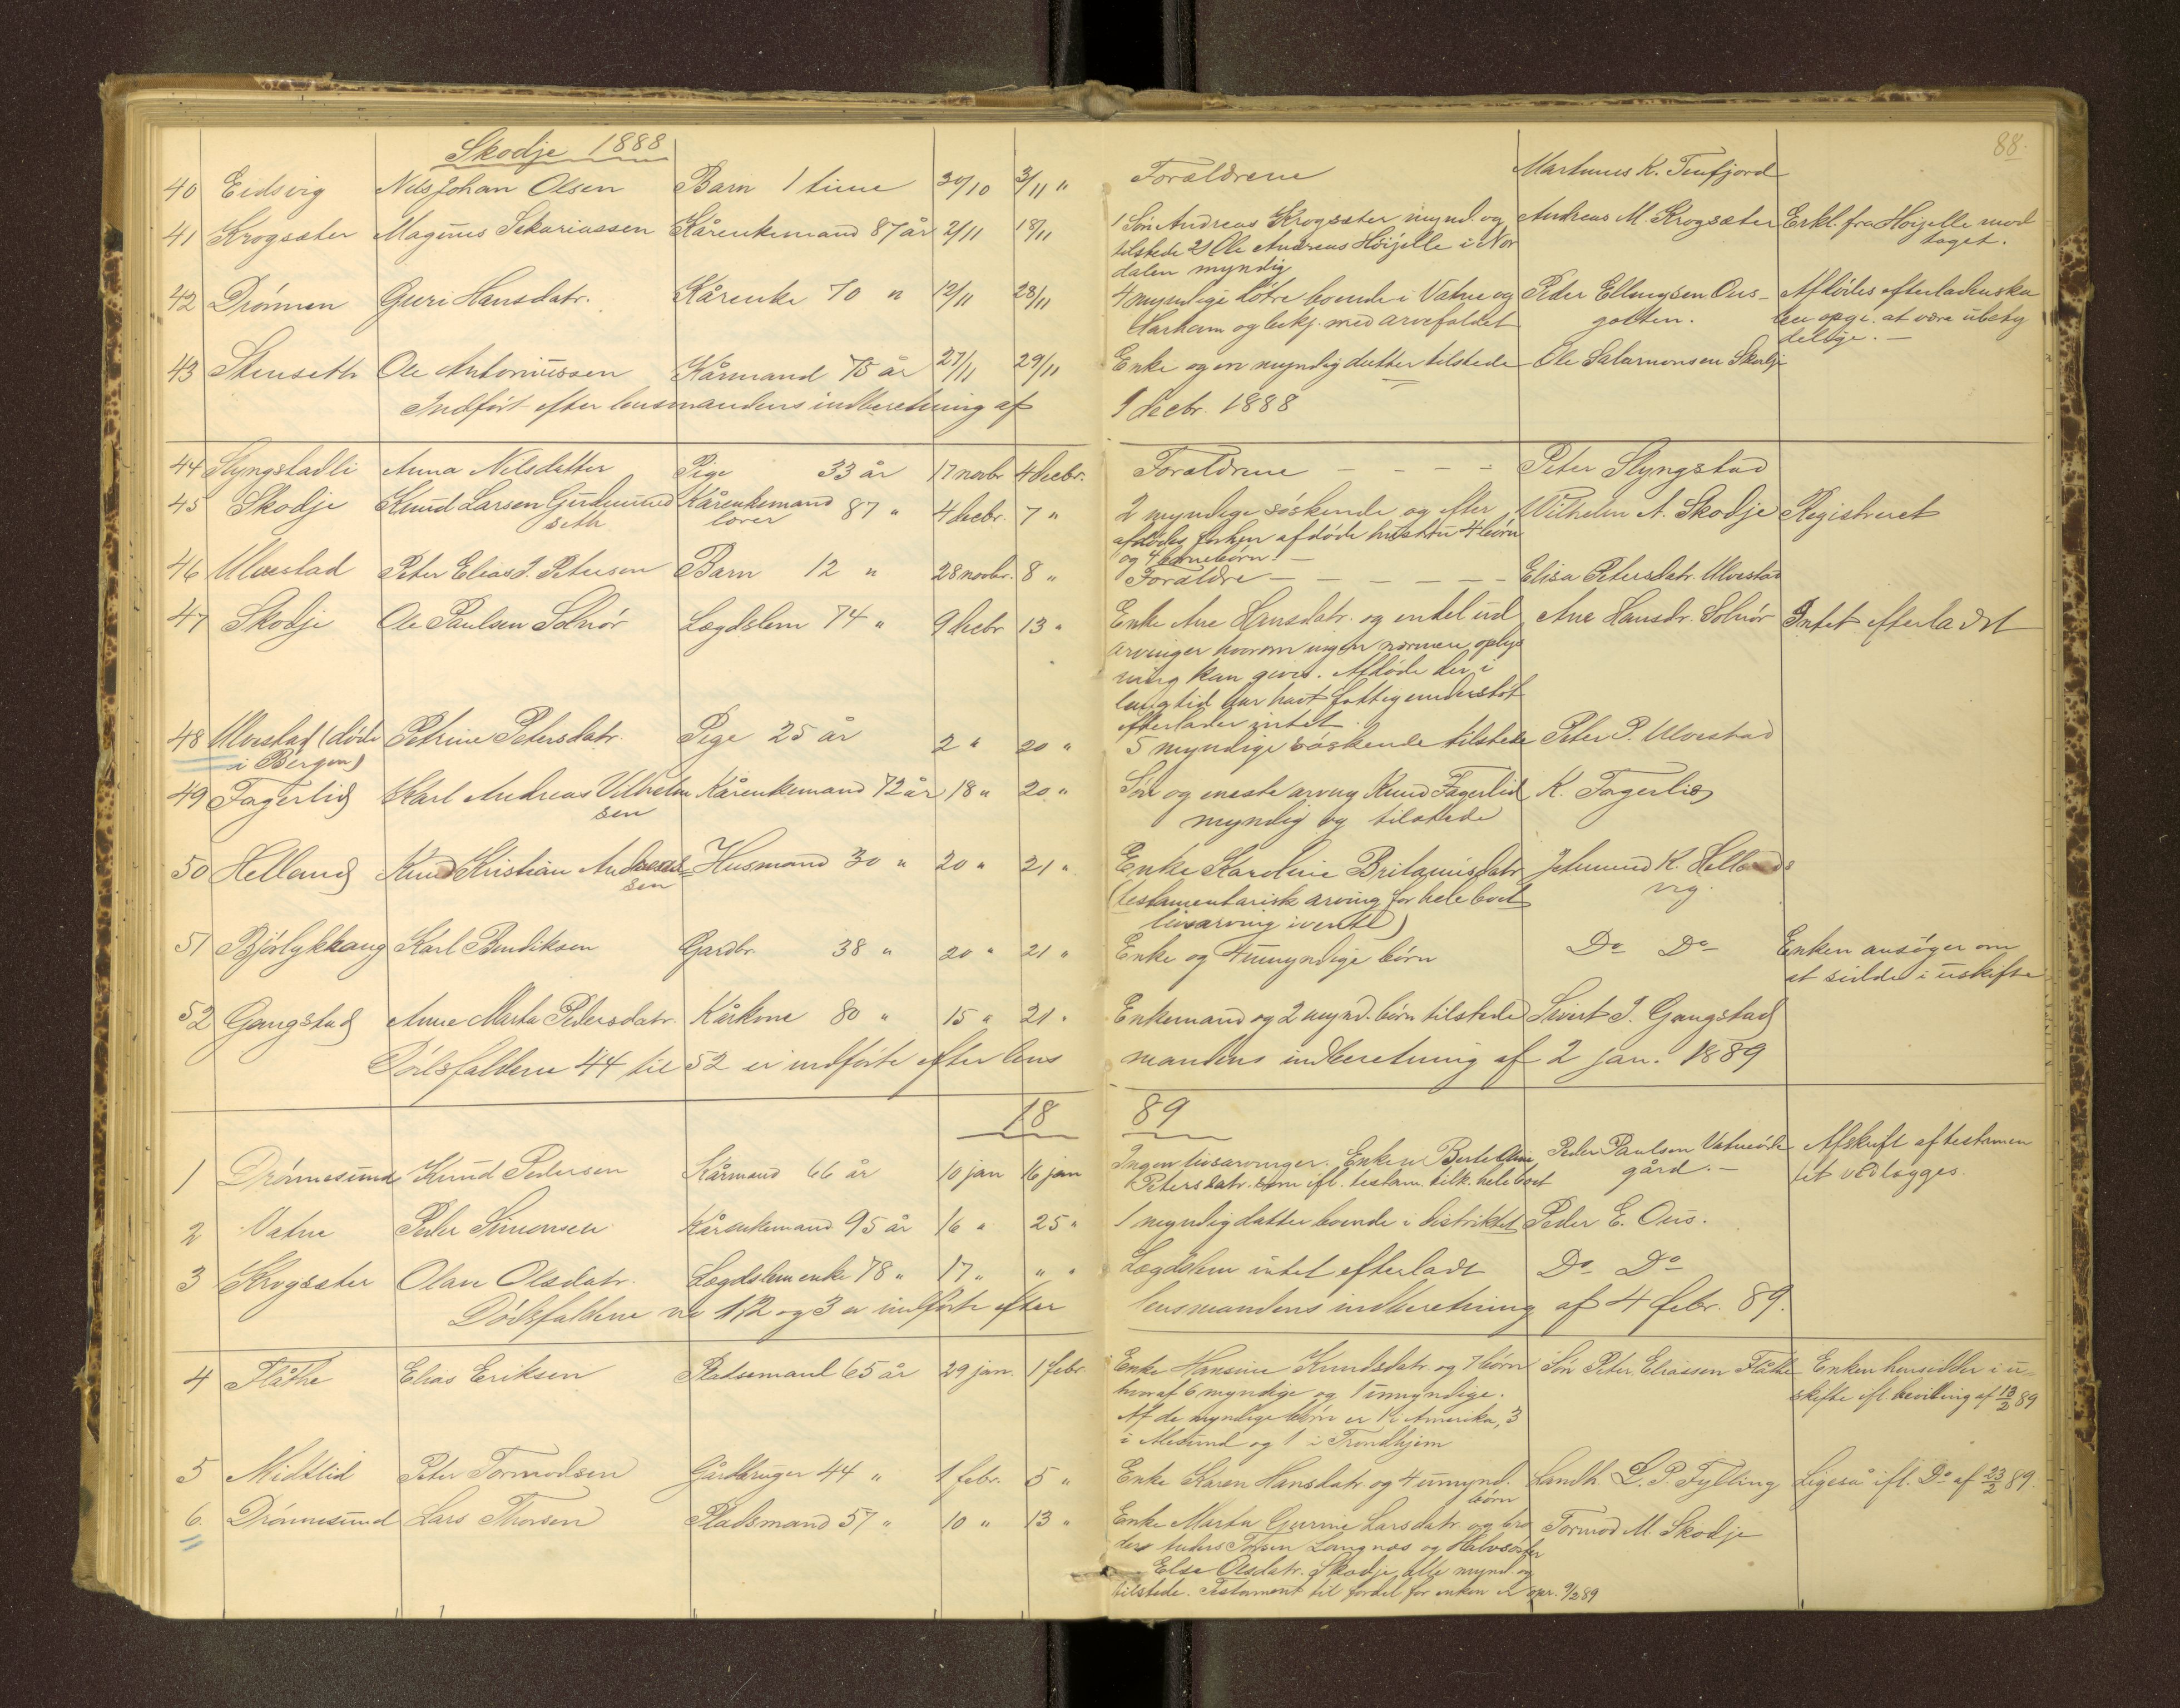 Skodje 1888
88.
40 Eidsvig Nils Johan Olsen Barn 1 time 30/10 3/11 " Forældrene Martinus K. Tenfjord
41 Krogsæter Magnus Sekariassen Kårenkemand 87 år 2/11 18/11 1 Søn Andreas Krogsæter mynd. og Andreas M. Krogsæter Erkl. fra Høijelle mod
tilstede 2) Ole Andreas Høijelle i Nor taget.
dalen myndig
42 Drónnen Guri Hansdatr. Kårenke 70 " 12/11 28/11 4 myndige døtre boende i Vatne og Peder Ellingsen Ous- Afdødes efterladenska
Harham og bekj. med arvefaldet golten. ber opgi. at være ubety
delige. —
43 Stenseth Ole Antoniussen Kårmand 75 år 27/11 29/11 Enke og en myndig datter tilstede Ole Salamonsen Skodje
Indført efter lensmandens indberetning af 1 decbr. 1888
44 Slyngstadli Anna Nilsdatter Pige 33 år 17 novbr 4 decbr. Forældrene - - - - Peter Slyngstad
45 Skodje Knud Larsen Gudmund Kårenkemand 87 " 4 decbr. 7 " 2 myndige søskende og efter Wilhelm A. Skodje Registreret
seth afdødes forhen afdøde hustru 4 børn
og 4 børnebørn. —
46 Ulvestad Peter Elias J. Petersen Barn 12 " 28 novbr. 8 " Forældre - - - - - - Elisa Petersdatr. Ulvestad
47 Skodje Ole Paulsen Solnør Lægdslem 74 " 9 decbr 13 " Enke Ane Hansdatr. og endel ud Ane Hansdr. Solnør Intet efterladt
arvinger hvorom ingen nærmere oplys
ning kan gives. Afdøde der i
lang tid har havt fattigunderstøt
efterlader intet.
48 Ulvestad (døde Petrine Petersdatr. Pige 25 år 2 " 20 " 5 myndige søskende tilstede Peter P. Ulvestad
i Bergen)
49 Fagerlid Karl Andreas Vilhelm Kårenkemand 72 år 18 " 20 " Søn og eneste arving Knud Fagerlid K. Fagerlid
sen myndig og tilstede
50 Helland Knud Kristian Andreas Husmand 30 " 20 " 21 " Enke Karoline Britanusdatr Jetmund K. Hellands
sen (testamentarisk arving for hele boet vig.
livsarving ivente)
51 Bjørlykhaug Karl Bendiksen Gardbr. 38 " 20 " 21 " Enke og 4 umyndige børn Do Do Enken ansøger om
at sidde i uskifte
52 Gangstad Anne Marta Pedersdatr. Kårkone 80 " 15 " 21 " Enkemand og 2 mynd. børn tilstede Sivert J. Gangstad
Dødsfaldene 44 til 52 er indførte efter lens mandens indberetning af 2 jan. 1889
18 89
1 Drønnesund Knud Pedersen Kårmand 66 år 10 jan 16 jan Ingen livsarvinger. Enken Berte Ane Peder Paulsen Vatneøde Afskrift af testamen
Petersdatr. som ifl. testam. tilk. hele boet gård. — tet vedlægges.
2 Vatne Peder Simensen Kårenkemand 95 år 16 " 25 " 1 myndig datter boende i distriktet Peder E. Ous.
3 Krogsæter Olave Olsdatr. Lægdslem enke 78 " 17 " " " Lægdslem intet efterladt Do Do
Dødsfaldene no 1, 2 og 3 er indførte efter lensmandens indberetning af 4 febr. 89.
4 Flåthe Elias Eriksen Pladsemand 65 år 29 jan. 1 febr. Enke Hansine Knudsdatr. og 7 børn Søn Peter Eliassen Flåthe Enken hensidder i u-
hvoraf 6 myndige og 1 umyndige. skifte ifl. bevilling af 13/2 89
Af de myndige børn er 1 i Amerika, 3
i Ålesund og 1 i Trondhjem
5 Midtlid Peter Tormodsen Gårdbruger 44 " 1 febr. 5 " Enke Karen Hansdatr. og 4 umynd. Landh. L. P. Fylling Ligeså ifl. Do af 23/2 89.
børn
6. Drønnesund Lars Thorsen Pladsmand 57 " 10 " 13 " Enke Marta Gurine Larsdatr og bro Tormod M. Skodje
der Anders Torsen Langnæs og Halvsøster
Else Olsdatr. Skodje, alle mynd og
tilstede. Testament til fordel for enken er opr. 9/2 89